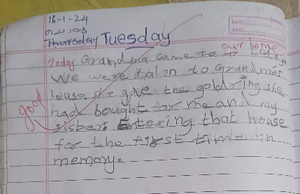 16-1-24
Thursday Tuesday
Today Grandma came to our home
We were taken to Grandmas
house she give the gold ring she
had bought for me and my
sister Entering that house
for the first time in
memory.
good